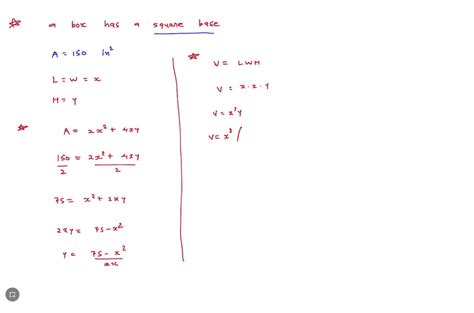 a box has a square base
A = 150 in²
L = W = x
H = y
A = 2x² + 4xy
150 = 2x² + 4xy
2 2
75 = x² + 2xy
2xy = 75 - x²
y = 75 - x²
2x
V = LWH
V = x · x · y
V = x²y
V = x² (